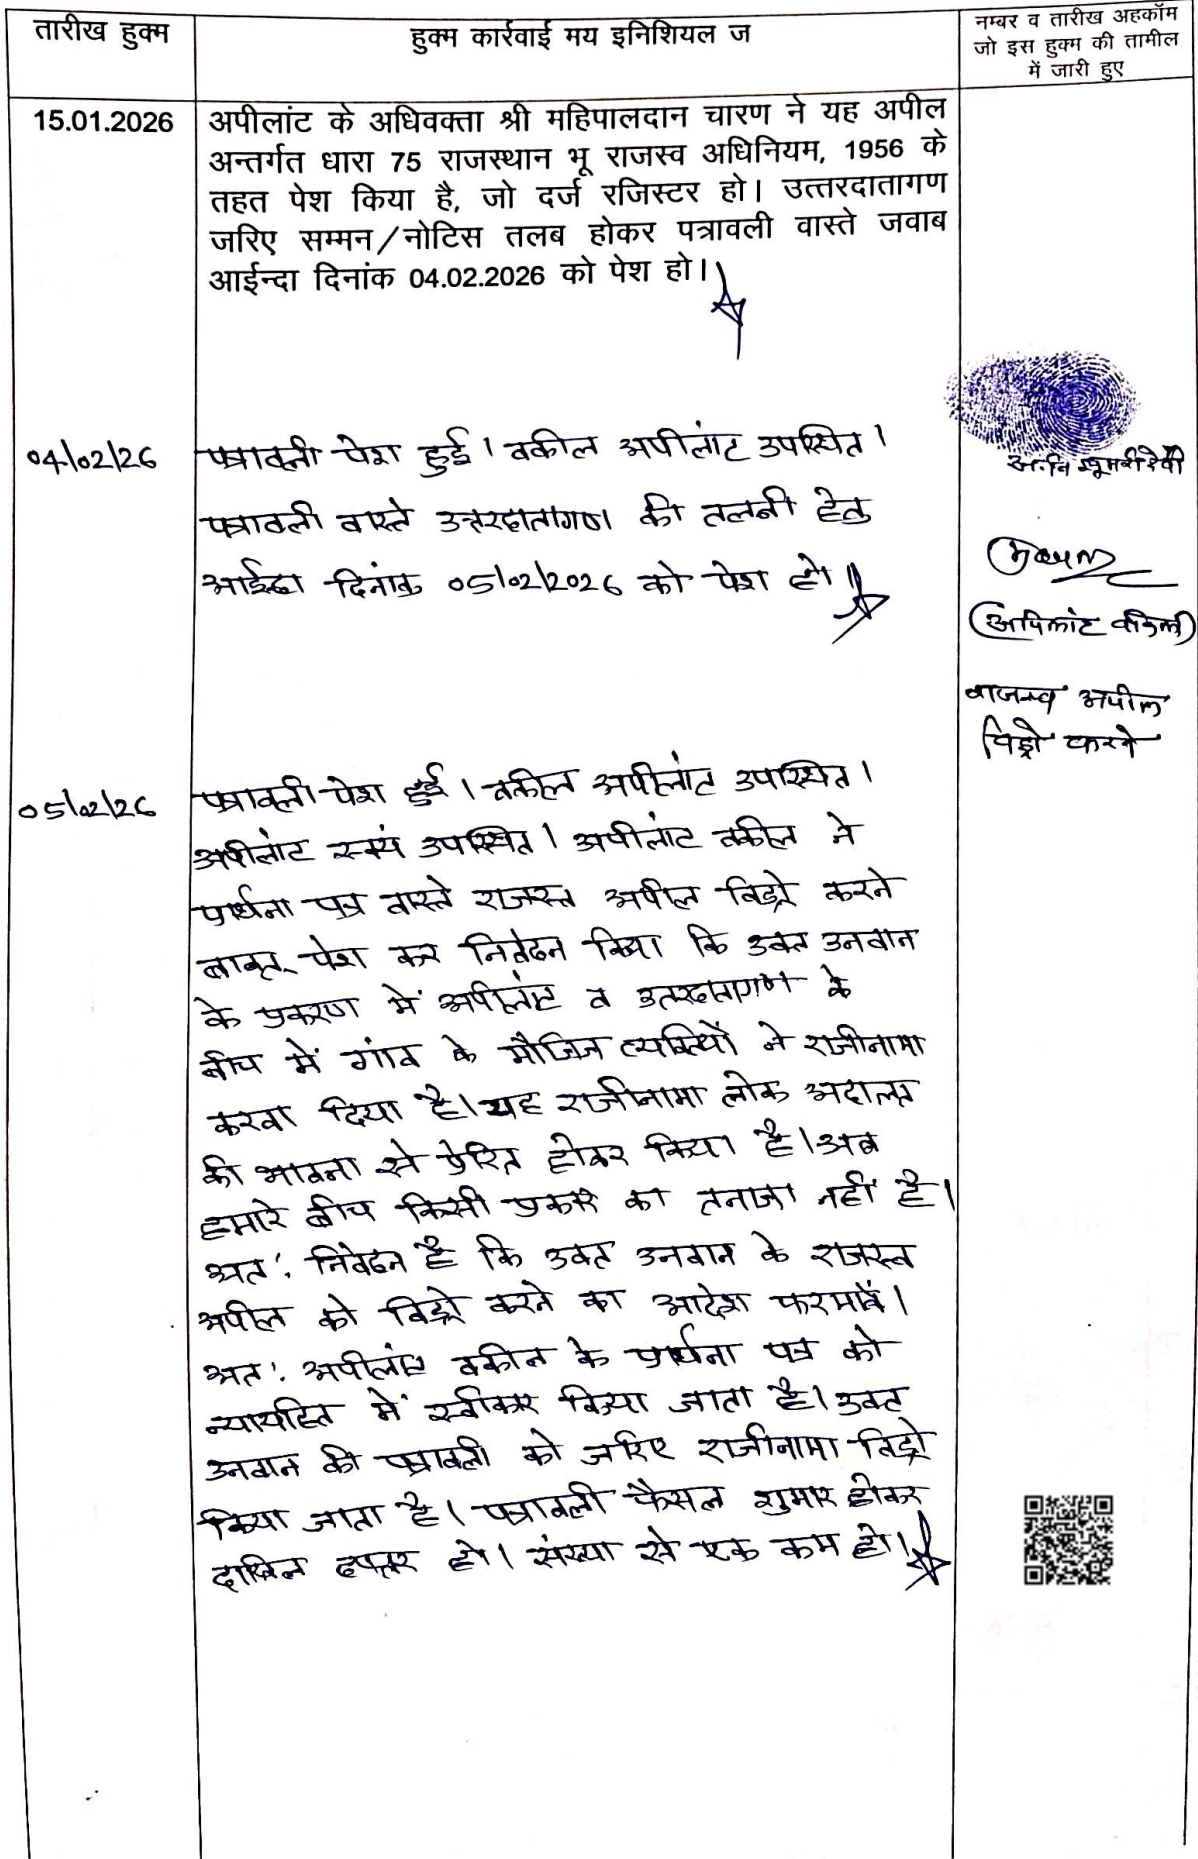 तारीख हुक्म
हुक्म कार्रवाई मय इनिशियल ज
नम्बर व तारीख अहकॉम
जो इस हुक्म की तामील
में जारी हुए
15.01.2026
अपीलांट के अधिवक्ता श्री महिपालदान चारण ने यह अपील
अन्तर्गत धारा 75 राजस्थान भू राजस्व अधिनियम, 1956 के
तहत पेश किया है, जो दर्ज रजिस्टर हो। उत्तरदातागण
जरिए सम्मन/नोटिस तलब होकर पत्रावली वास्ते जवाब
आईन्दा दिनांक 04.02.2026 को पेश हो।
04/02/26
पत्रावली पेश हुई। वकील अपीलांट उपस्थित।
पत्रावली वास्ते उत्तरदातागण की तलबी हेतु
आईंदा दिनांक 05/02/2026 को पेश हो।
(अपिलांट वकील)
राजस्व अपील
विड्रो करने
05/02/26
पत्रावली पेश हुई। वकील अपीलांट उपस्थित।
अपीलांट स्वयं उपस्थित। अपीलांट वकील ने
प्रार्थना पत्र वास्ते राजस्व अपील विड्रो करने
बाबत् पेश कर निवेदन किया कि उक्त उनवान
के प्रकरण में अपीलांट व उतरदातागण के
बीच में गांव के मौजिज व्यक्तियों ने राजीनामा
करवा दिया है। यह राजीनामा लोक अदालत
की भावना से प्रेरित होकर किया है। अब
हमारे बीच किसी प्रकार का तनाजा नहीं है।
अत: निवेदन है कि उक्त उनवान के राजस्व
अपील को विड्रो करने का आदेश फरमावें।
अत: अपीलांट वकील के प्रार्थना पत्र को
न्यायहित में स्वीकार किया जाता है। उक्त
उनवान की पत्रावली को जरिए राजीनामा विड्रो
किया जाता है। पत्रावली फैसल शुमार होकर
दाखिल दफ्तर हो। संख्या से एक कम हो।